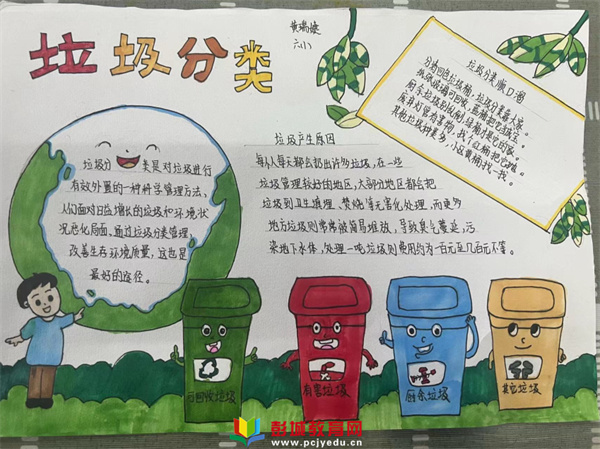 垃圾分类
六小
垃圾分类是对垃圾进行
有效处置的一种科学管理方法,
人们面对日益增长的垃圾和环境状
况恶化局面,通过垃圾分类管理,
改善生存环境质量,这也是
最好的途径。
垃圾产生原因
每人每天都会扔出许多垃圾,在一些
垃圾管理较好的地区,大部分地区都会把
垃圾到卫生填埋、焚烧等无害化处理,而更多
地方垃圾则常常被简易堆放,导致臭气蔓延,污
染地下水体,处理一吨垃圾则费用约为一百元至几百元不等。
垃圾分类顺口溜
分为四色垃圾桶,垃圾分类靠大家。
纸张玻璃可回收,蓝桶
废弃灯管有害物,我了红桶把它
其他垃圾种类多,小区黄桶找一找。
可回收垃圾
有害垃圾
厨余垃圾
其它垃圾
彭城教育网
www.pcjyedu.cn